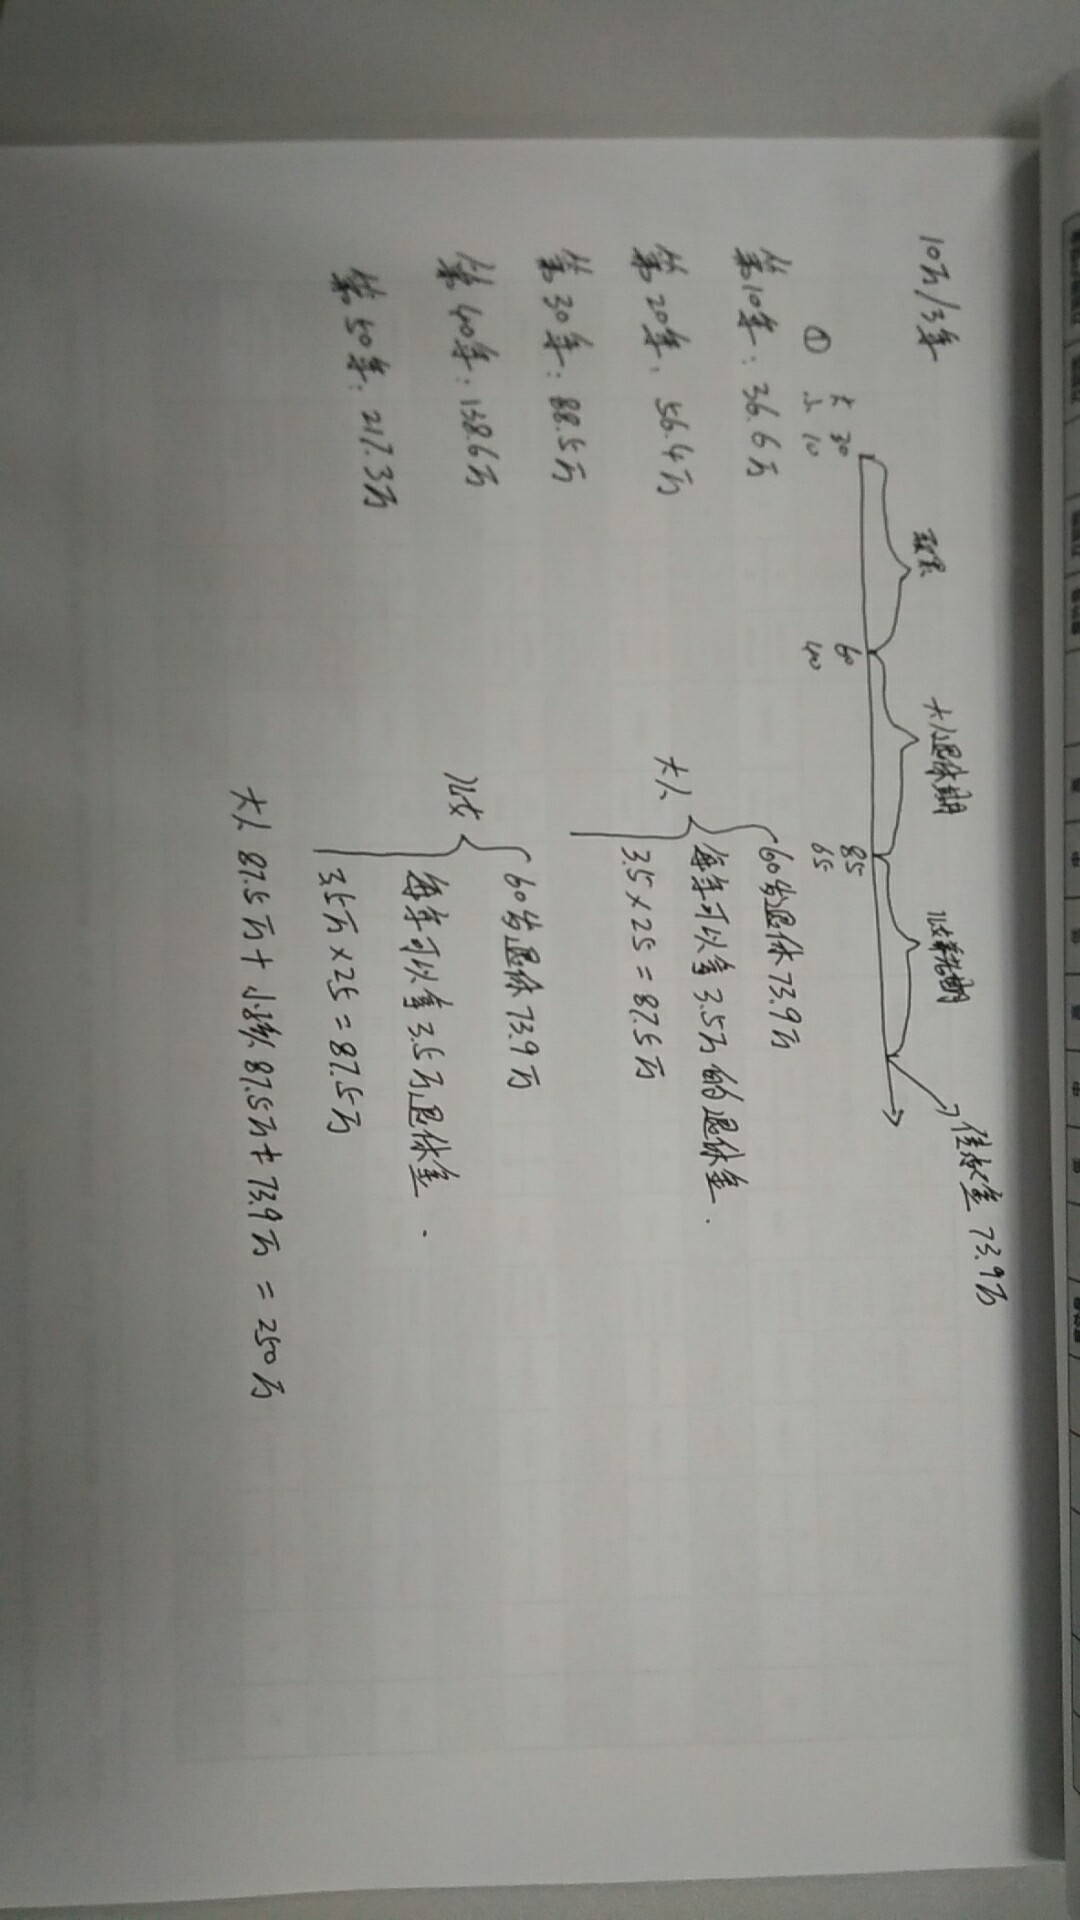 10万/3年
大 30 60 85
① 小 10 40 65
大人退休期
儿女养老期
传承金 73.9万
第10年: 36.6万
第20年: 56.4万
第30年: 88.5万
第40年: 138.6万
第50年: 217.3万
大人
60岁退休73.9万
每年可以拿3.5万的退休金.
3.5×25=87.5万
儿女
60岁退休73.9万
每年可以拿3.5万退休金.
3.5万×25=87.5万
大人 87.5万+小孩 87.5万+73.9万=250万